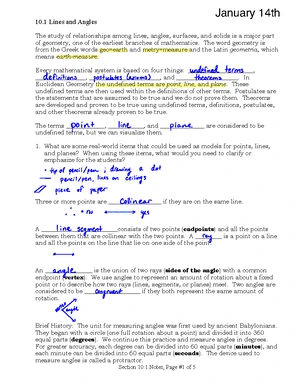 January 14th
10.1 Lines and Angles
The study of relationships among lines, angles, surfaces, and solids is a major part
of geometry, one of the earliest branches of mathematics. The word geometry is
from the Greek words geo=earth and metry=measure and the Latin geometria, which
means earth-measure.
Every mathematical system is based on four things: undefined terms,
definitions, postulates (axioms), and theorems. In
Euclidean Geometry the undefined terms are point, line, and plane. These
undefined terms are then used within the definitions of other terms. Postulates are
the statements that are assumed to be true and we do not prove them. Theorems
are developed and proven to be true using undefined terms, definitions, postulates,
and other theorems already proven to be true.
The terms point, line, and plane are considered to be
undefined terms, but we can visualize them.
1. What are some real-world items that could be used as models for points, lines,
and planes? When using these items, what would you need to clarify or
emphasize for the students?
• tip of pencil/pen; drawing a dot
pencil/pen, lines on ceilings
piece of paper
Three or more points are colinear if they are on the same line.
= no yes
A line segment consists of two points (endpoints) and all the points
between them that are collinear with the two points. A ray is a point on a line
and all the points on the line that lie on one side of the point.
An angle is the union of two rays (sides of the angle) with a common
endpoint (vertex). We use angles to represent an amount of rotation about a fixed
point or to describe how two rays (lines, segments, or planes) meet. Two angles are
considered to be congruent if they both represent the same amount of
rotation.
Brief History: The unit for measuring angles was first used by ancient Babylonians.
They began with a circle (one full rotation about a point) and divided it into 360
equal parts (degrees). We continue this practice and measure angles in degrees.
For greater accuracy, each degree can be divided into 60 equal parts (minutes), and
each minute can be divided into 60 equal parts (seconds). The device used to
measure angles is called a protractor.
Section 10.1 Notes, Page #1 of 5